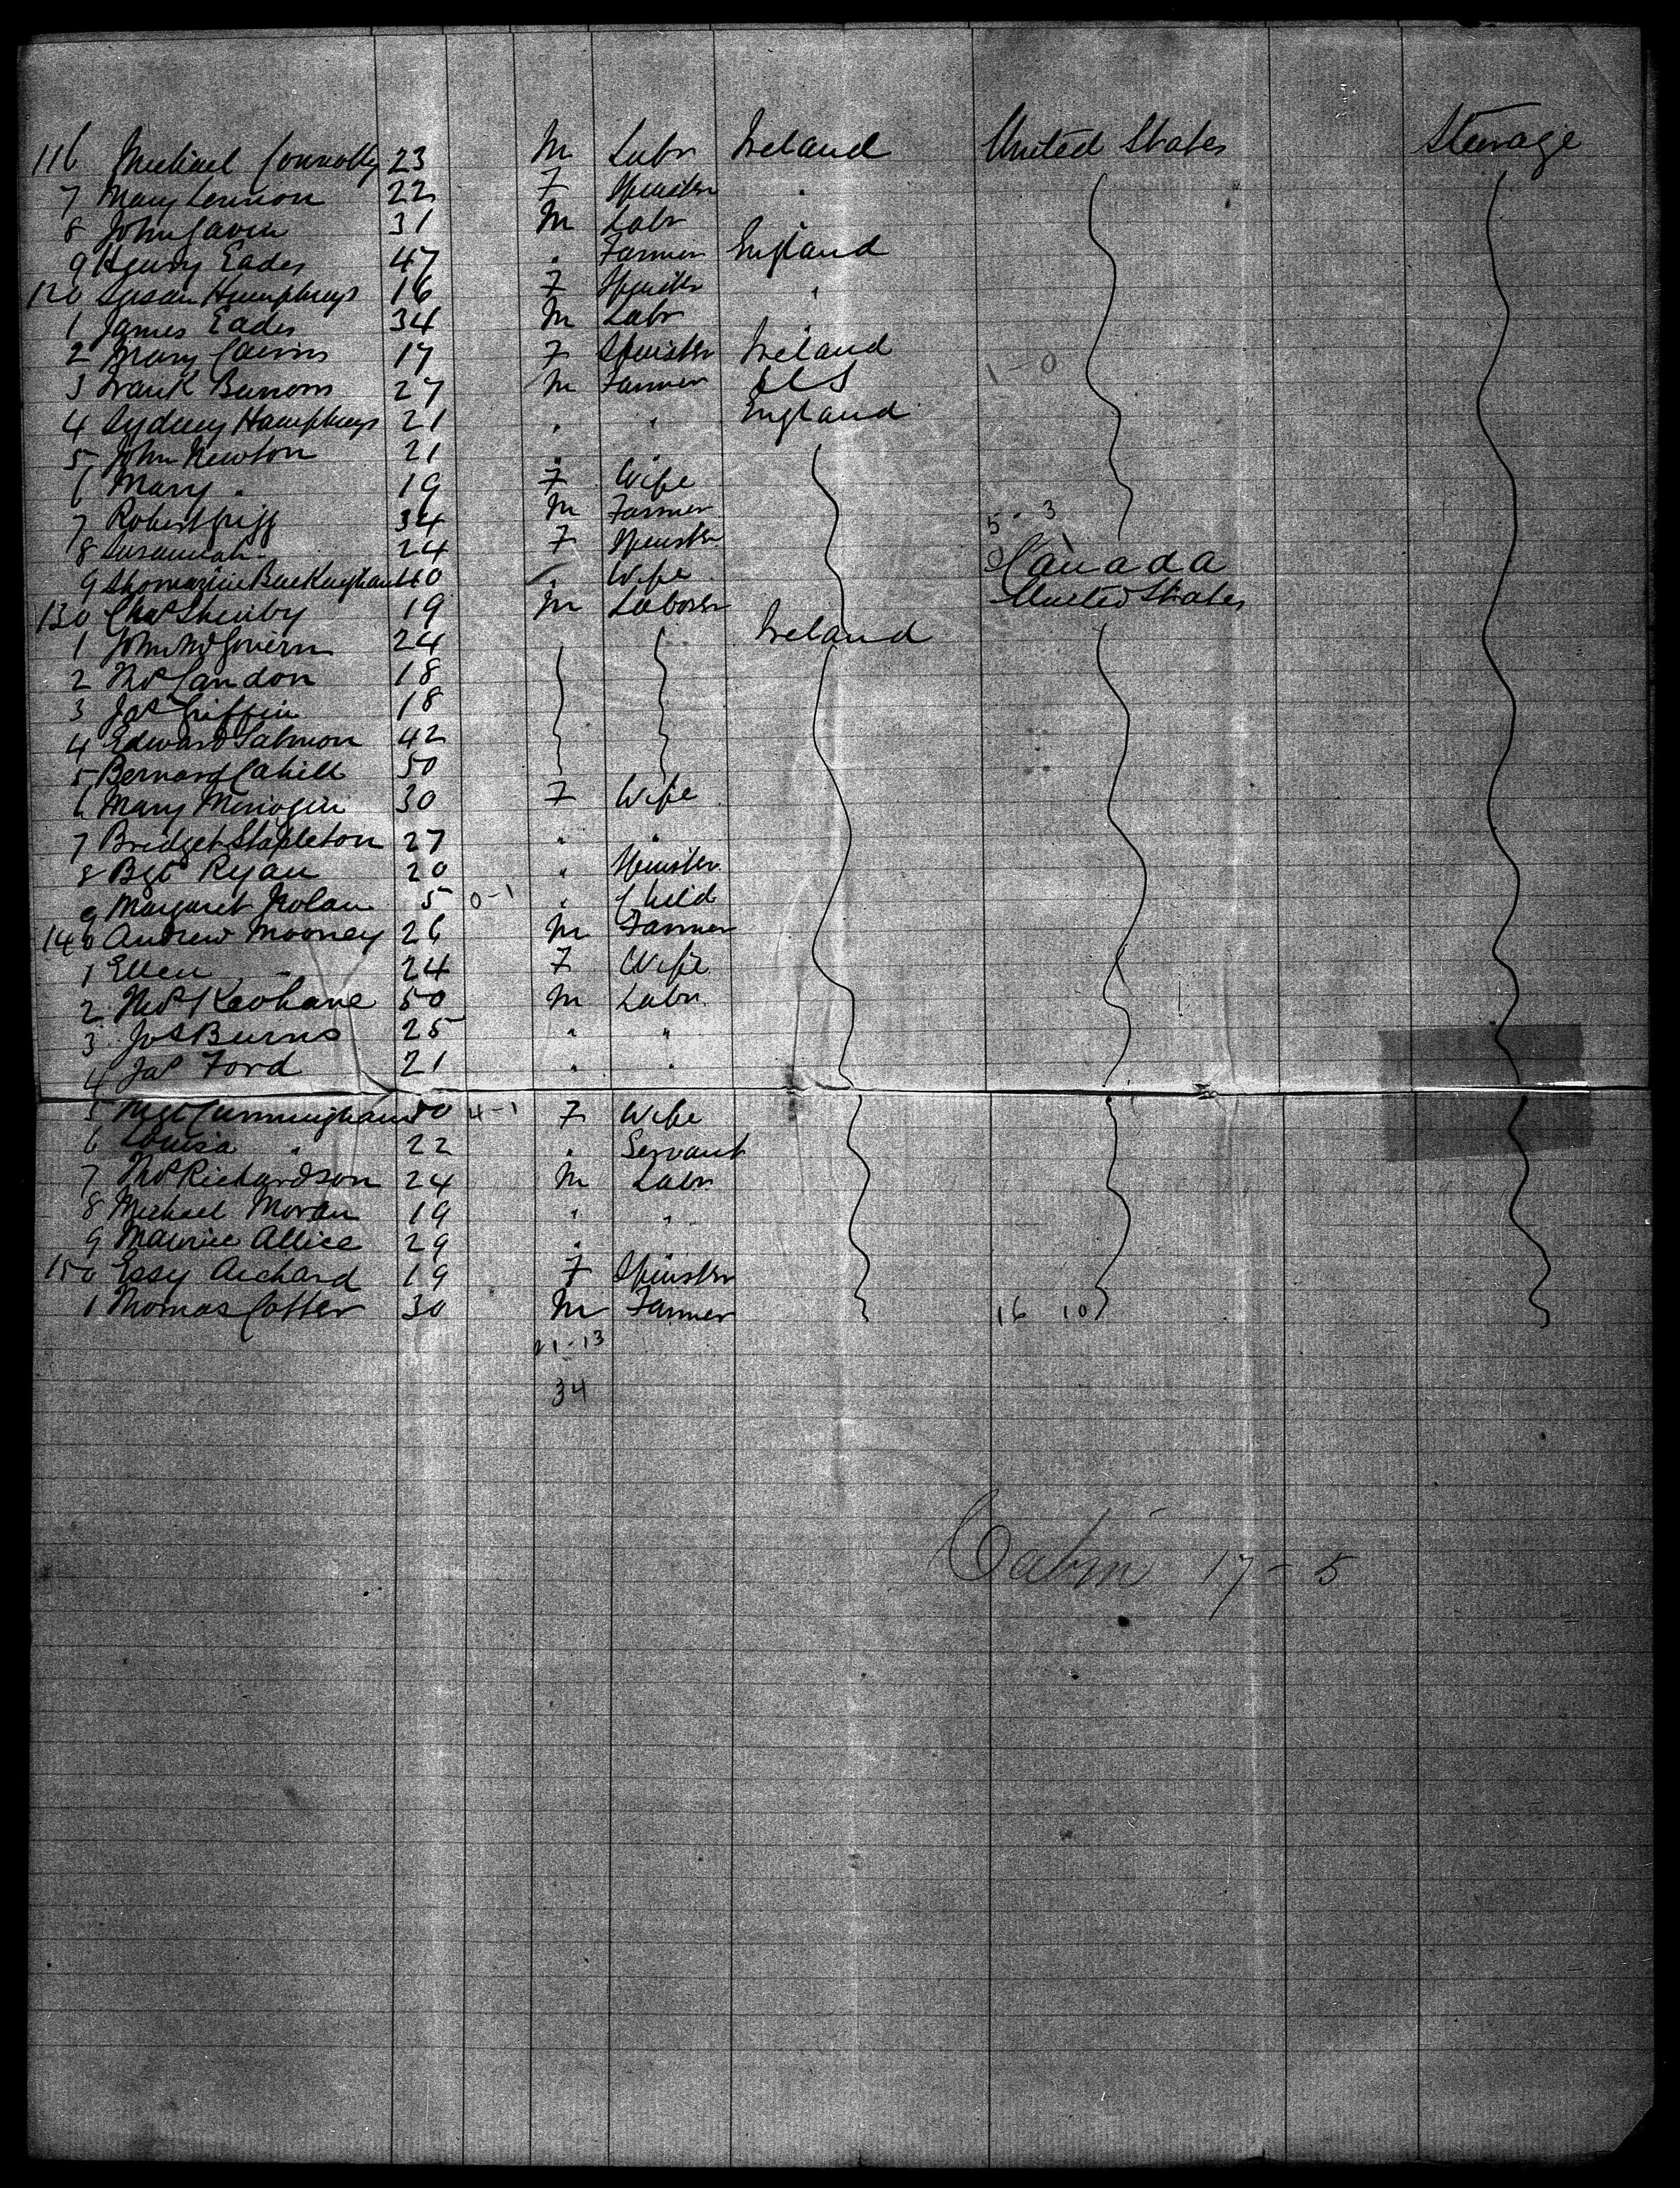 116 Michael Connolly 23 M Labr Ireland United States Steerage
7 Mary Lennon 22 F Spinster "
8 John Gavin 31 M Labr "
9 Henry Eades 47 " Farmer England
120 Susan Humphreys 16 F Spinster "
1 James Eades 34 M Labr "
2 Mary Cairns 17 F Spinster Ireland
3 Frank Burrows 27 M Farmer U S 1-0
4 Sydney Humphreys 21 " " England
5 John Newton 21 " "
6 Mary " 19 F Wife
7 Robert 34 M Farmer 5-3
8 Susannah 24 F Spinster Canada
9 Buckingham 40 " Wife United States
130 Chas Shenby 19 M Laborer
1 John McGovern 24 Ireland
2 Thos Landon 18
3 Jas Griffin 18
4 Edward Salmon 42
5 Bernard Cahill 50
6 Mary 30 F Wife
7 Bridget Stapleton 27 " "
8 Bgt Ryan 20 " Spinster
9 Margaret Nolan 5 0-1 " Child
140 Andrew Mooney 26 M Farmer
1 Ellen " 24 F Wife
2 Thos Keohane 50 M Labr
3 Jos Burns 25 " "
4 Jas Ford 21 " "
5 Mgt Cunningham 50 4-1 F Wife
6 Louisa " 22 " Servant
7 Thos Richardson 24 M Labr
8 Michael Moran 19 " "
9 Maurice Allice 29 "
150 Essy Archard 19 F Spinster
1 Thomas Cotter 30 M Farmer 16 10
21-13
34
Cabin 17-5